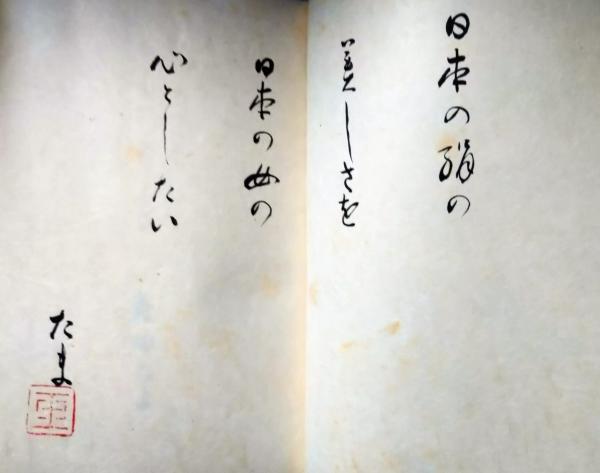 日本の絹の
美しさを
日本の女の
心としたい
たま
玉